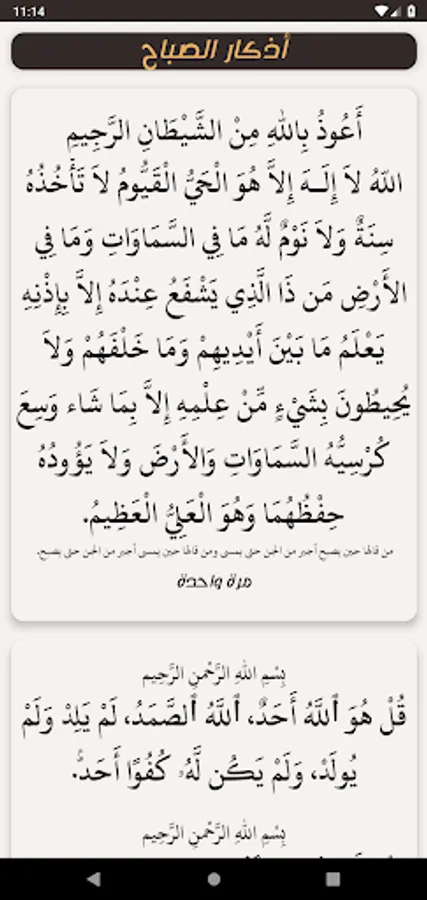 11:14
أذكار الصباح
أَعُوذُ بِاللهِ مِنْ الشَّيْطَانِ الرَّجِيمِ
اللّهُ لاَ إِلَـهَ إِلاَّ هُوَ الْحَيُّ الْقَيُّومُ لاَ تَأْخُذُهُ
سِنَةٌ وَلاَ نَوْمٌ لَّهُ مَا فِي السَّمَاوَاتِ وَمَا فِي
الأَرْضِ مَن ذَا الَّذِي يَشْفَعُ عِنْدَهُ إِلاَّ بِإِذْنِهِ
يَعْلَمُ مَا بَيْنَ أَيْدِيهِمْ وَمَا خَلْفَهُمْ وَلاَ
يُحِيطُونَ بِشَيْءٍ مِّنْ عِلْمِهِ إِلاَّ بِمَا شَاء وَسِعَ
كُرْسِيُّهُ السَّمَاوَاتِ وَالأَرْضَ وَلاَ يَؤُودُهُ
حِفْظُهُمَا وَهُوَ الْعَلِيُّ الْعَظِيمُ.
من قالها حين يصبح أجير من الجن حتى يمسى ومن قالها حين يمسى أجير من الجن حتى يصبح.
مرة واحدة
بِسْمِ اللهِ الرَّحْمنِ الرَّحِيم
قُلْ هُوَ ٱللَّهُ أَحَدٌ، ٱللَّهُ ٱلصَّمَدُ، لَمْ يَلِدْ وَلَمْ
يُولَدْ، وَلَمْ يَكُن لَّهُۥ كُفُوًا أَحَدٌۢ.
بِسْمِ اللهِ الرَّحْمنِ الرَّحِيم